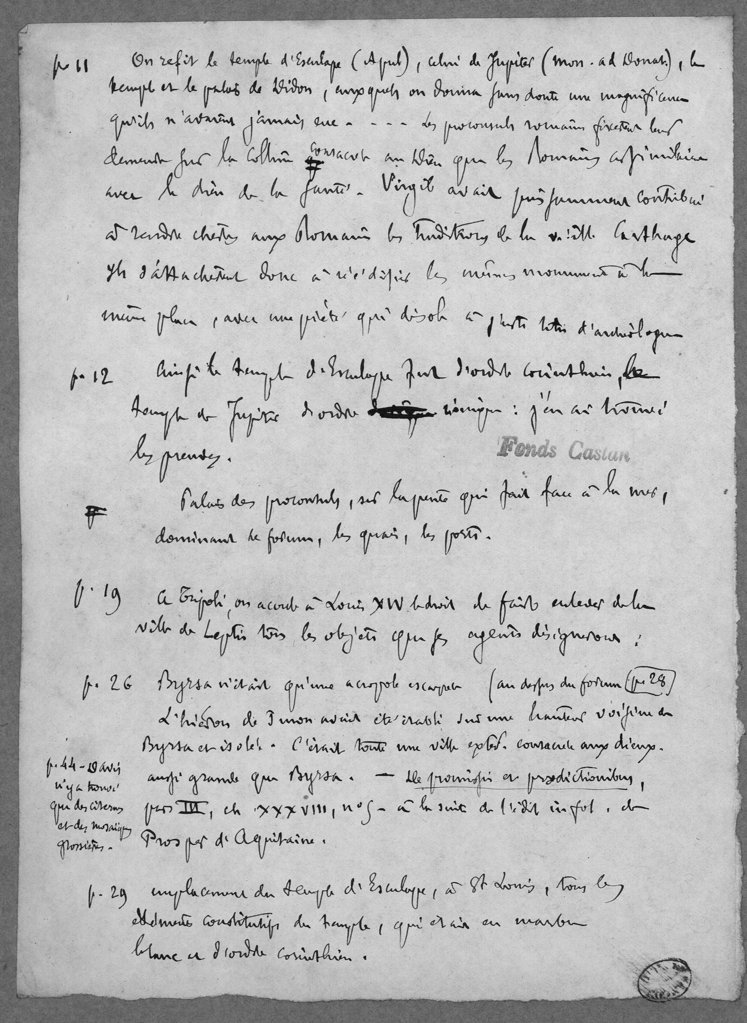 p. 11 On refit le temple d'Esculape (Apul), celui de Jupiter (mon. ad Donat.), le
temple et le palais de Didon, auxquels on donna sans doute une magnificence
qu'ils n'avaient jamais eue. - - - Les proconsuls romains fixèrent leur
demeure sur la colline consacrée au Dieu que les Romains assimilaient
avec le dieu de la santé. Virgile avait puissamment contribué
à rendre chères aux Romains les traditions de la vieille Carthage
Ils s'attachèrent donc à réédifier les mêmes monuments à la
même place, avec une piété qui désole à juste titre l'archéologue
p. 12 Ainsi le temple d'Esculape fut d'ordre corinthien, le
temple de Jupiter d'ordre ionique : j'en ai trouvé
les preuves.
Palais des proconsuls, sur la pente qui fait face à la mer,
dominant le forum, les quais, les ports.
Fonds Castan
p. 19 A Tripoli, on accorde à Louis XIV le droit de faire enlever de la
ville de Leptis tous les objets que ses agents désigneront :
p. 26 Byrsa n'était qu'une acropole escarpée (au dessus du forum p. 28)
L'hiéron de Junon avait été établi sur une hauteur voisine de
Byrsa et isolée. C'était toute une ville consacrée aux dieux.
aussi grande que Byrsa. — De promissis et praedictionibus,
pars III, ch XXXVIII, n° 5 - à la suite de l'édit in fol. de
Prosper d'Aquitaine.
p. 44 - Davis
n'y a trouvé
que des citernes
et des mosaïques
grossières.
p. 29 emplacement du temple d'Esculape, à St Louis, tous les
éléments constitutifs du temple, qui était en marbre
blanc et d'ordre corinthien.